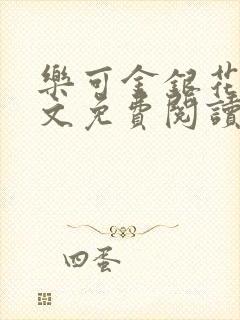 樂可金銀花
文免費閱讀
四蛋